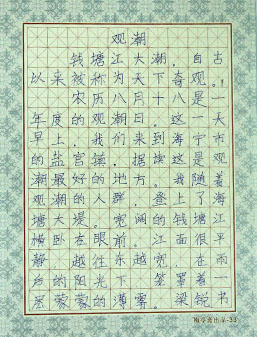 观潮
钱塘江大潮，自古
以来被称为天下奇观。
农历八月十八是一
年一度的观潮日。这一天
早上，我们来到海宁市
的盐官镇，据说这是观
潮最好的地方。我随着
观潮的人群，登上了海
塘大堤。宽阔的钱塘江
横卧在眼前。江面很平
静 越往东越宽，在雨
后的阳光下 笼罩着一
层蒙蒙的薄雾。梁锐书